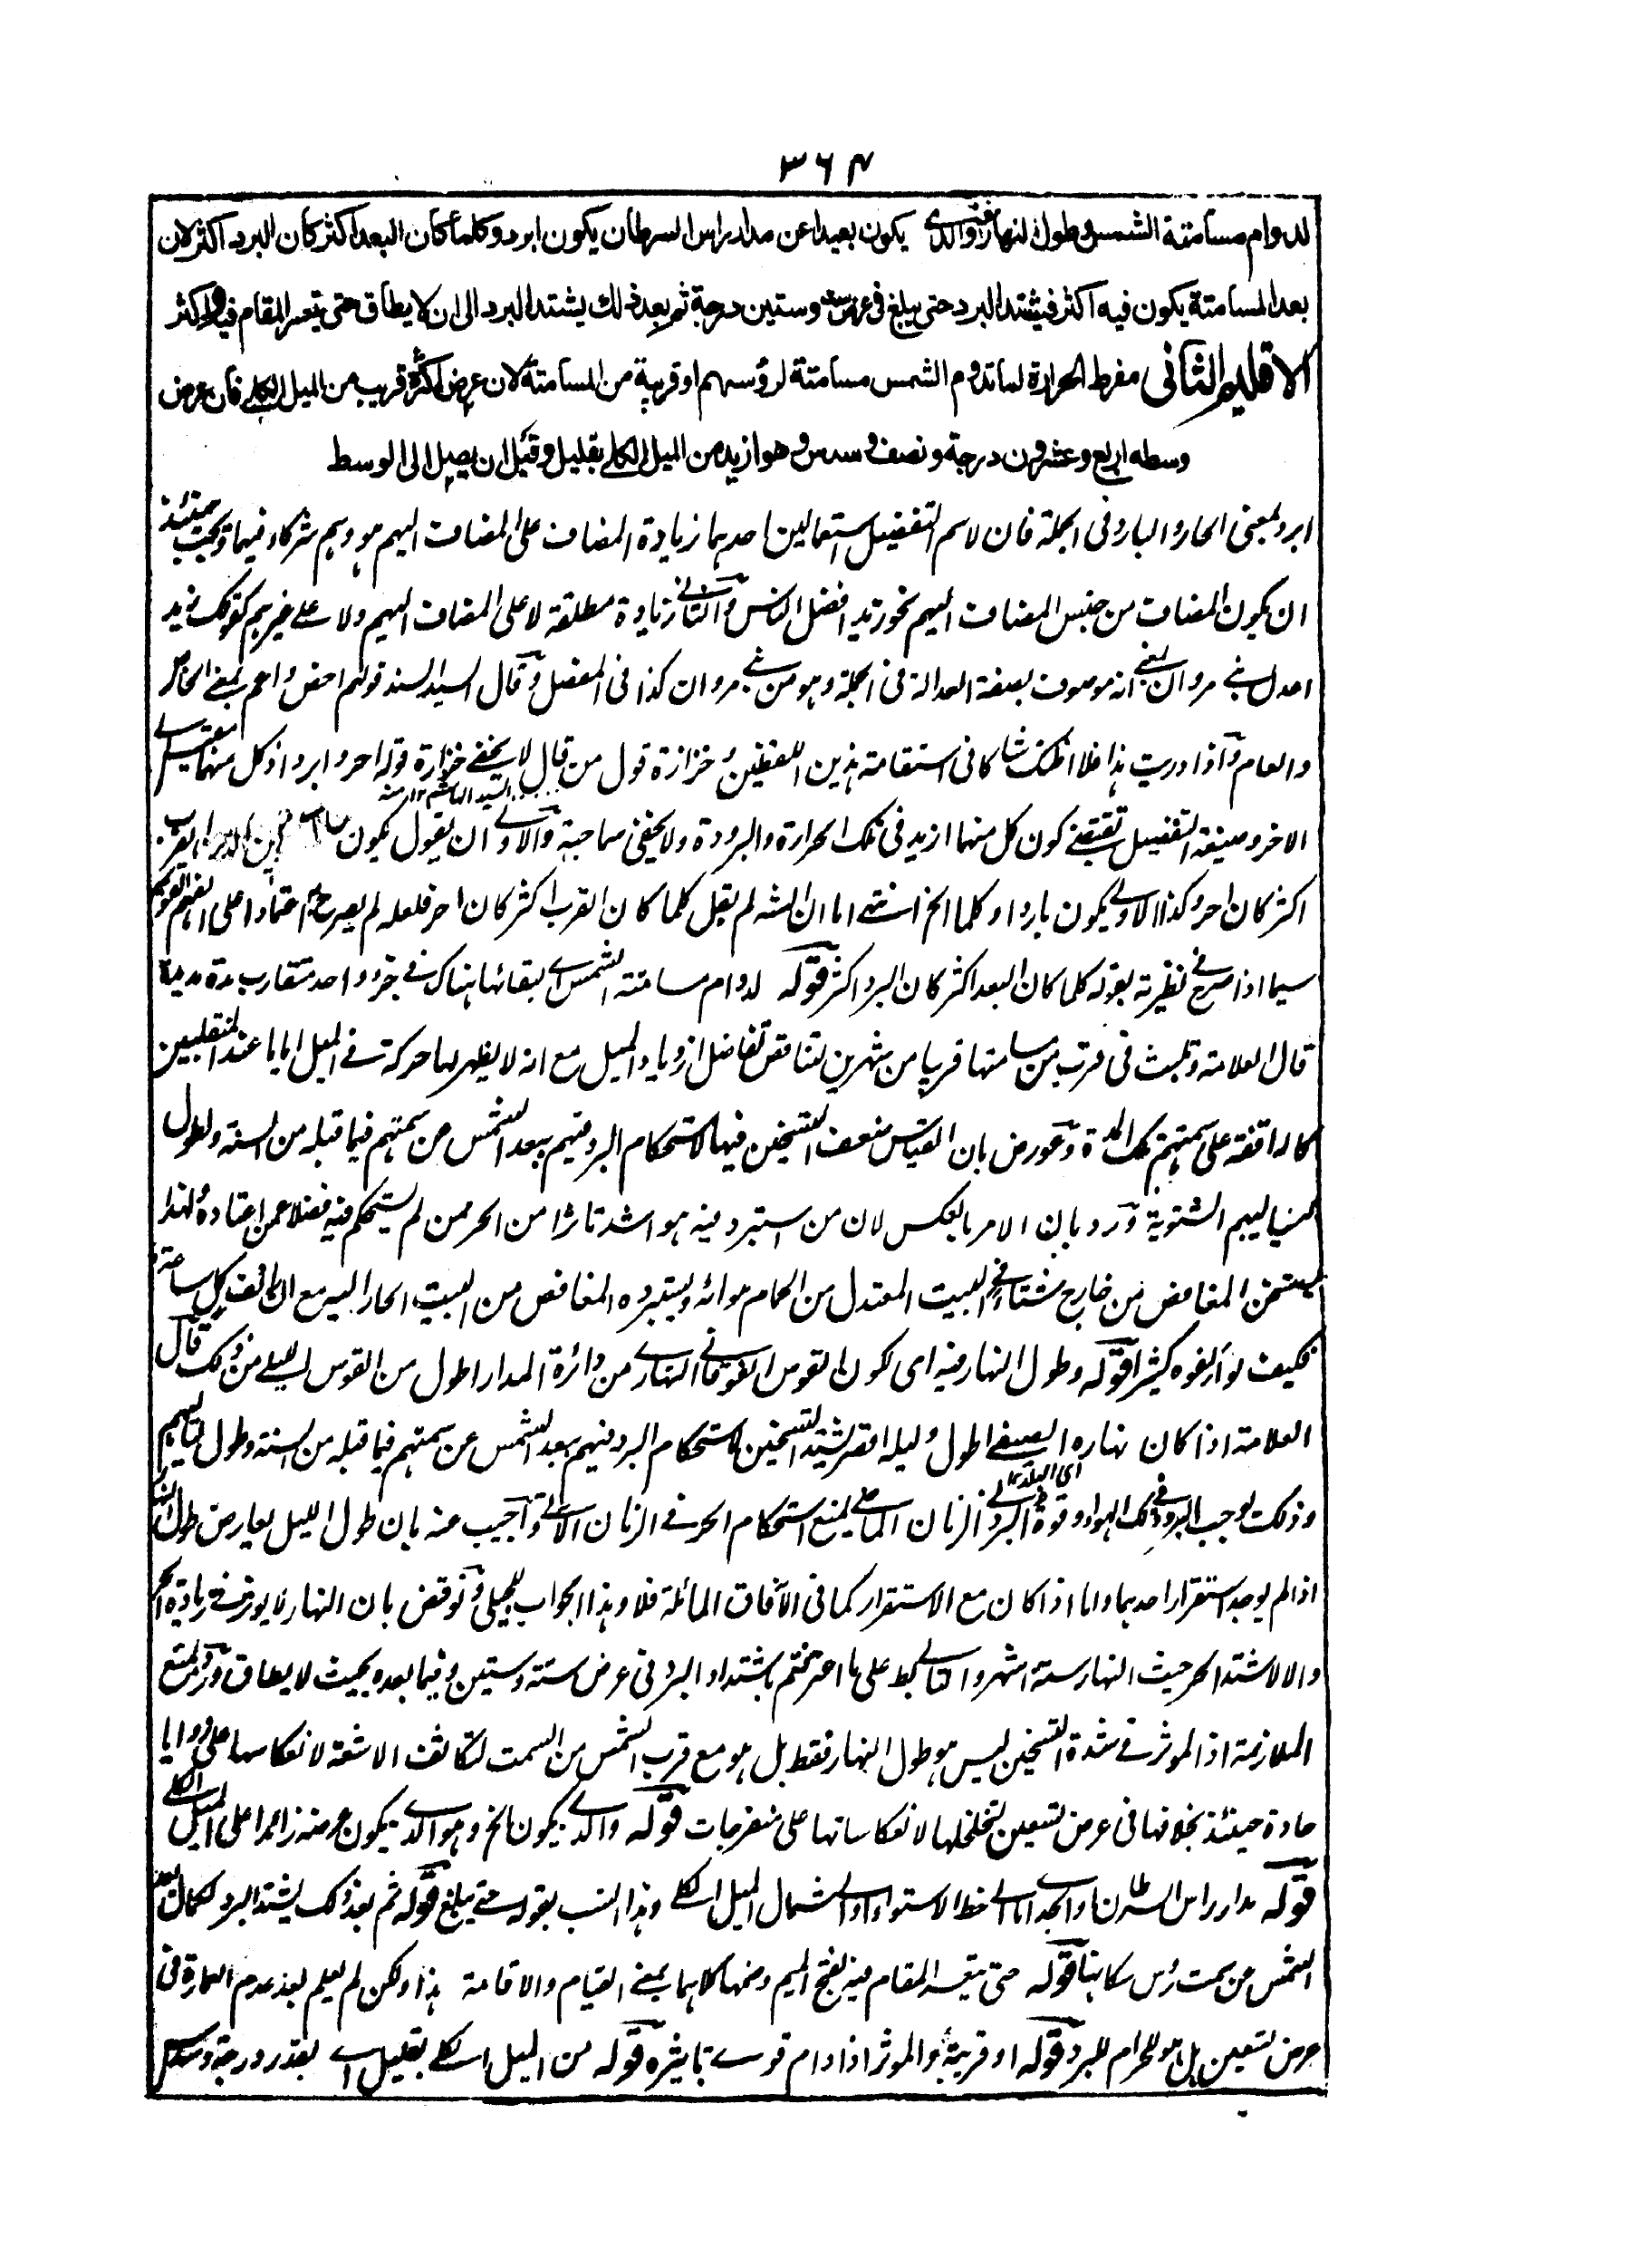 ٣٦٤
لدوام مسامتة الشمس وطول النهار فيه والذى يكون بعيدا عن مدار راس السرطان يكون ابرد وكلما كان البعد اكثر كان البرد اكثر لان
بعد المسامتة يكون فيه اكثر فيشتد البرد حتى يبلغ فى عرض ست وستين درجة ثم بعد ذلك يشتد البرد الى ان لا يطاق حتى يتعسر المقام فيه واكثر
الاقليم الثانى مفرط الحرارة لما تدوم الشمس مسامتة لرؤسهم او قريبة من المسامتة لان عرض اكثره قريب من الميل الكلى فان عرض
وسطه اربع وعشرون درجة ونصف وسدس وهو ازيد من الميل الكلى بقليل وقبل ان يصل الى الوسط
ابرد بمعنى الحار والبارد فى الجملة فان لاسم التفضيل استعمالين احدهما زيادة المضاف على المضاف اليهم هو وهم شركاء فيها ويجب حينئذ
ان يكون المضاف من جنس المضاف اليهم نحو زيد افضل الناس والثانى زيادة مطلقة لا على المضاف اليهم ولا على غيرهم كقولك زيد
اعدل بنى مروان يعنى انه موصوف بصفة العدالة فى الجملة وهو من بنى مروان كذا فى المفصل وقال السيد السند قولهم اخص واعم بمعنى الخاص
والعام واذا دريت هذا فلا اظنك شاكا فى استقامة هذين اللفظين وخزازة قول من قال لا يخفى خزازة قوله احر وابرد اذ كل منهما يقتضى
السيد الهاشم ١٢ منه
الاخر وصيغة التفضيل تقتضى كون كل منهما ازيد فى تلك الحرارة والبرودة ولا يخفى سماجته والاولى ان يقول يكون
اكثر كان احر وكذا الاولى يكون باردا وكلما الخ انتهى اما ان الشه لم يقل كلما كان القرب اكثر كان احر فلعله لم يصرح به اعتمادا على الفهم القويم
سيما اذا صرح فى نظيرته بقوله كلما كان البعد اكثر كان البرد اكثر قوله لدوام مسامتة الشمس اى لبقائها هناك فى جزء واحد متقارب مدة مديدة
قال العلامة وتلبث فى قرب من مسامتها قريبا من شهرين لتناقص تفاضل ازدياد الميل مع انه لا يظهر لها حركة فى الميل اياما عند المنقلبين
كالواقفة على سمتهم تلك المدة وعورض بان القياس ضعف التسخين فيها لاستحكام البرد فيهم ببعد الشمس عن سمتهم فيما قبله من السنة ولطول
لياليهم الشتوية ورد بان الامر بالعكس لان من استبرد فيه هو اشد تاثرا من الحر ممن لم يستحكم فيه فضلا عمن اعتاده ولهذا
يستخن المغافص من خارج شتاء فى البيت المعتدل من الحمام هوائه ويستبرده المغافص من البيت الحار اليه مع ان كل ساعة
فكيف لو الفوه كثيرا قوله وطول النهار فيه اى لكون القوس الفوقانى النهارى من دائرة المدار اطول من القوس الليلى من ذلك قال
العلامة اذا كان نهاره الصيفى اطول وليله اقصر يشتد التسخين لاستحكام البرد فيهم ببعد الشمس عن سمتهم فيما قبله من السنة وطول لياليهم
اى البلد ١٢
وذلك يوجب البرد فى ذلك الهواء وقوة البرد فى الزمان الماضى يمنع استحكام الحر فى الزمان الاتى واجيب عنه بان طول الليل يعارض طول النهار
اذا لم يوجد استقرار احدهما واما اذا كان مع الاستقرار كما فى الآفاق المائلة فلا وهذا الجواب ونوقض بان النهار لا يؤثر فى زيادة الحر
والا لاشتد الحر حيث النهار ستة اشهر والتالى بط على ما اعترفتم باشتداد البرد فى عرض ستة وستين وفيما بعده بحيث لا يطاق ورد بمنع
الملازمة اذ الموثر فى شدة التسخين ليس هو طول النهار فقط بل هو مع قرب الشمس من السمت لتكاثف الاشعة لانعكاسها على زوايا
حادة حينئذ بخلافها فى عرض تسعين لتخلخلها لانعكاساتها على منفرجات قوله والذى يكون الخ وهو الذى يكون عرضه زائدا على الميل الكلى
قوله مدار راس السرطان او الجدى اما الى خط الاستواء او الى شمال الميل الكلى وهذا انسب بقوله حتى يبلغ قوله ثم بعد ذلك يشتد البرد لكمال بعد
الشمس عن سمت رؤس سكانها قوله حتى يتعسر المقام فيه بفتح الميم وضمها كلاهما بمعنى القيام والاقامة هذا ولكن لم يعلم بعد عدم العمارة فى
عرض تسعين بل هو للحرام للبرد قوله او قريبة والموثر اذا دام قوى تاثيره قوله من الميل الكلى بقليل اى بقدر درجة